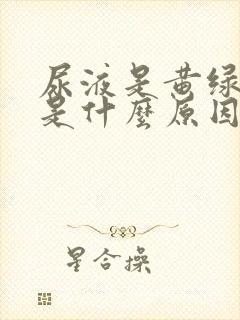 尿液是黄绿
是什麼原因
星合操